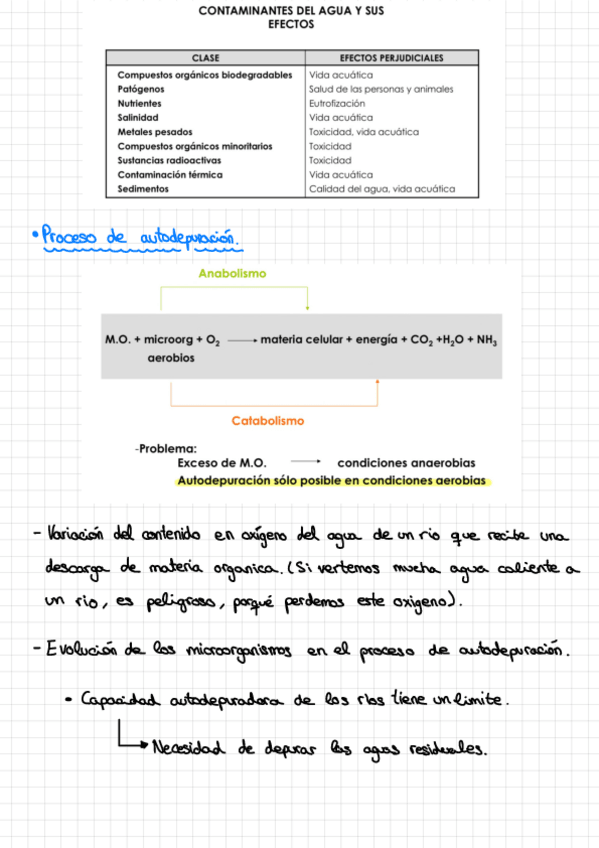 CONTAMINANTES DEL AGUA Y SUS
EFECTOS
CLASE EFECTOS PERJUDICIALES
Compuestos orgánicos biodegradables Vida acuática
Patógenos Salud de las personas y animales
Nutrientes Eutrofización
Salinidad Vida acuática
Metales pesados Toxicidad, vida acuática
Compuestos orgánicos minoritarios Toxicidad
Sustancias radioactivas Toxicidad
Contaminación térmica Vida acuática
Sedimentos Calidad del agua, vida acuática
• Proceso de autodepuración.
Anabolismo
M.O. + microorg + O₂ → materia celular + energía + CO₂ +H₂O + NH₃
aerobios
Catabolismo
-Problema:
Exceso de M.O. → condiciones anaerobias
Autodepuración sólo posible en condiciones aerobias
- Variación del contenido en oxígeno del agua de un rio que recibe una
descarga de materia organica. (Si vertemos mucha agua caliente a
un rio, es peligroso, porqué perdemos este oxigeno).
- Evolución de los microorganismos en el proceso de autodepuración.
• Capacidad autodepuradora de los rios tiene un limite.
→ Necesidad de depurar las aguas residuales.